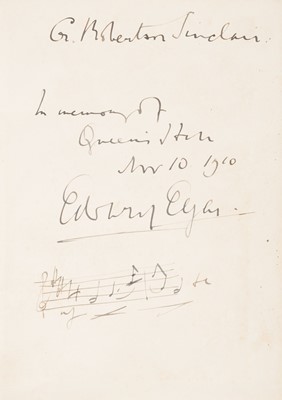 G. Robertson Sinclair.
In memory of
Queen's Hall
Nov 10 1910
Edward Elgar
mf